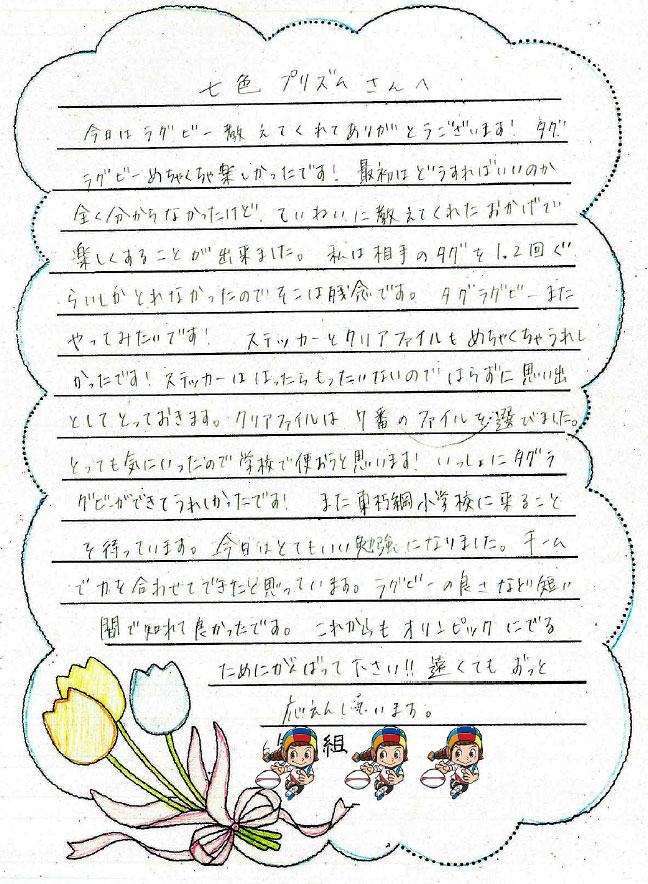 七色プリズムさんへ
今日はラグビー教えてくれてありがとうございます! タグ
ラグビーめちゃくちゃ楽しかったです! 最初はどうすればいいのか
全く分からなかったけど、ていねいに教えてくれたおかげで
楽しくすることが出来ました。 私は相手のタグを1.2回ぐ
らいしかとれなかったのでそこは残念です。 タグラグビーまた
やってみたいです! ステッカーとクリアファイルもめちゃくちゃうれし
かったです! ステッカーははったらもったいないのではらずに思い出
としてとっておきます。クリアファイルは7番のファイルを選びました。
とっても気にいったので学校で使おうと思います! いっしょにタグラ
グビーができてうれしかったです! また東朽網小学校に来ること
を待っています。今日はとてもいい勉強になりました。チーム
で力を合わせてできたと思っています。ラグビーの良さなど短い
間で知れて良かったです。 これからもオリンピックにでる
ためにがんばって下さい!! 遠くてもずっと
応えんし
います。
組